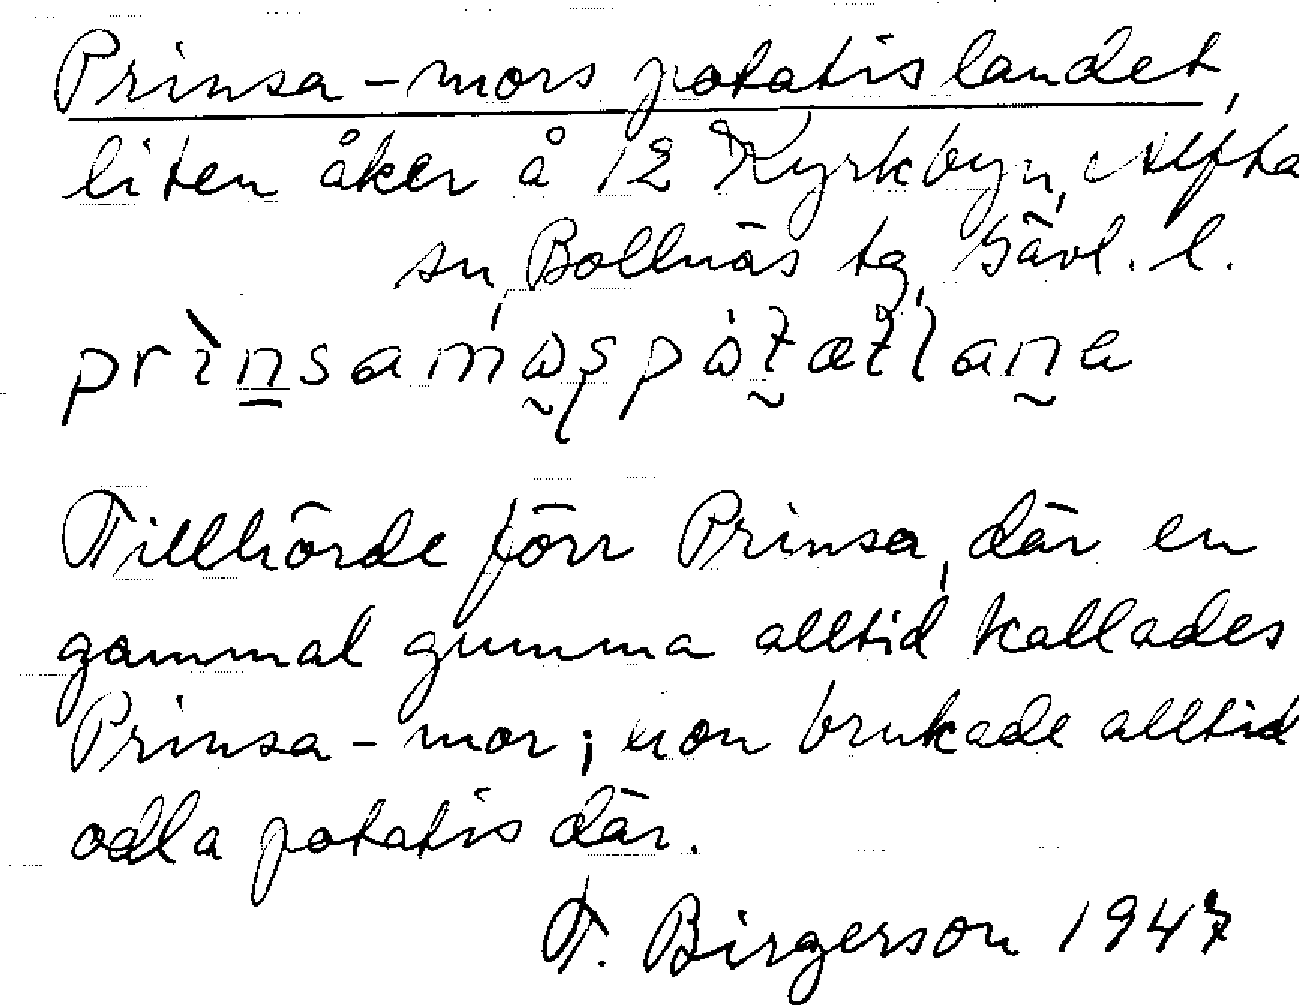 Prinsa-mors potatislandet,
liten åker å 12 Kyrkbyn, Alfta
sn, Bollnäs tg, Gävl. l.
Tillhörde förr Prinsa, där en
gammal gumma alltid kallades
Prinsa-mor; hon brukade alltid
odla potatis där.
T. Birgerson 1947